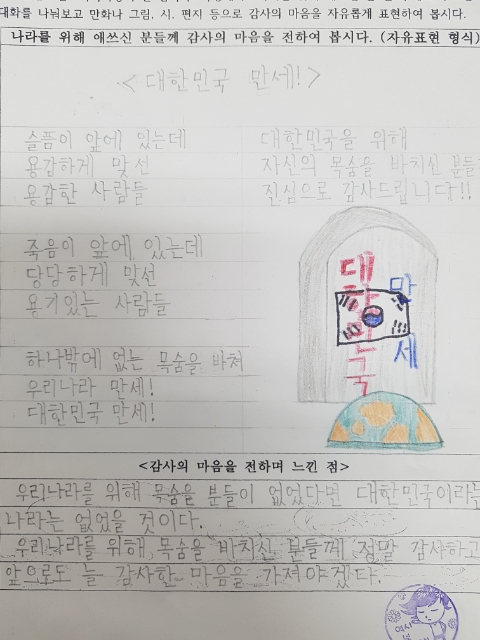 대화를 나눠보고 만화나 그림, 시. 편지 등으로 감사의 마음을 자유롭게 표현하여 봅시다.
나라를 위해 애쓰신 분들께 감사의 마음을 전하여 봅시다. (자유표현 형식)
<대한민국 만세!>
슬픔이 앞에 있는데
용감하게 맞선
용감한 사람들
죽음이 앞에 있는데
당당하게 맞선
용기있는 사람들
하나밖에 없는 목숨을 바쳐
우리나라 만세!
대한민국 만세!
대한민국을 위해
자신의 목숨을 바치신 분들
진심으로 감사드립니다!!
대한민국
만세
<감사의 마음을 전하며 느낀 점>
우리나라를 위해 목숨을 분들이 없었다면 대한민국이라는
나라는 없었을 것이다.
우리나라를 위해 목숨을 바치신 분들께 정말 감사하고
앞으로도 늘 감사한 마음을 가져야겠다.